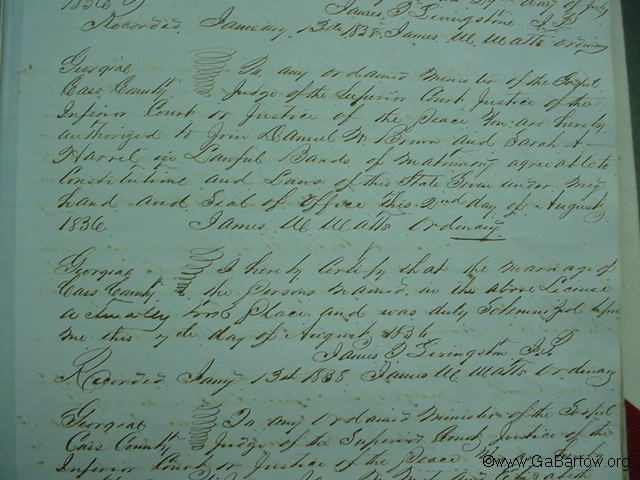 1836
James P Livingston J.P.
Recorded January 13th 1838. James M Watts Ordinary
Georgia
Cass County To any ordained Minister of the Gospel
Judge of the Superior Court, Justice of the
Inferior Court or Justice of the Peace You are hereby
authorized to Join Daniel W Brown and Sarah A
Harris in Lawful Bands of Matrimony agreable to
Constitutine and Laws of this State Given under my
hand and Seal of Office this 2nd day of August
1836 James M Watts Ordinary
Georgia I hereby Certify that the Marriage of
Cass County the Persons Named in the above License
took Place and was duly Solemnized before
me this day of August 1836
James P Livingston J.P.
Recorded Jany 13th 1838 James M Watts Ordinary
Georgia To any Ordained Minister of the Gospel
Cass County Judge of the Superior Court Justice of the
Inferior Court or Justice of the Peace
©www.GaBartow.org